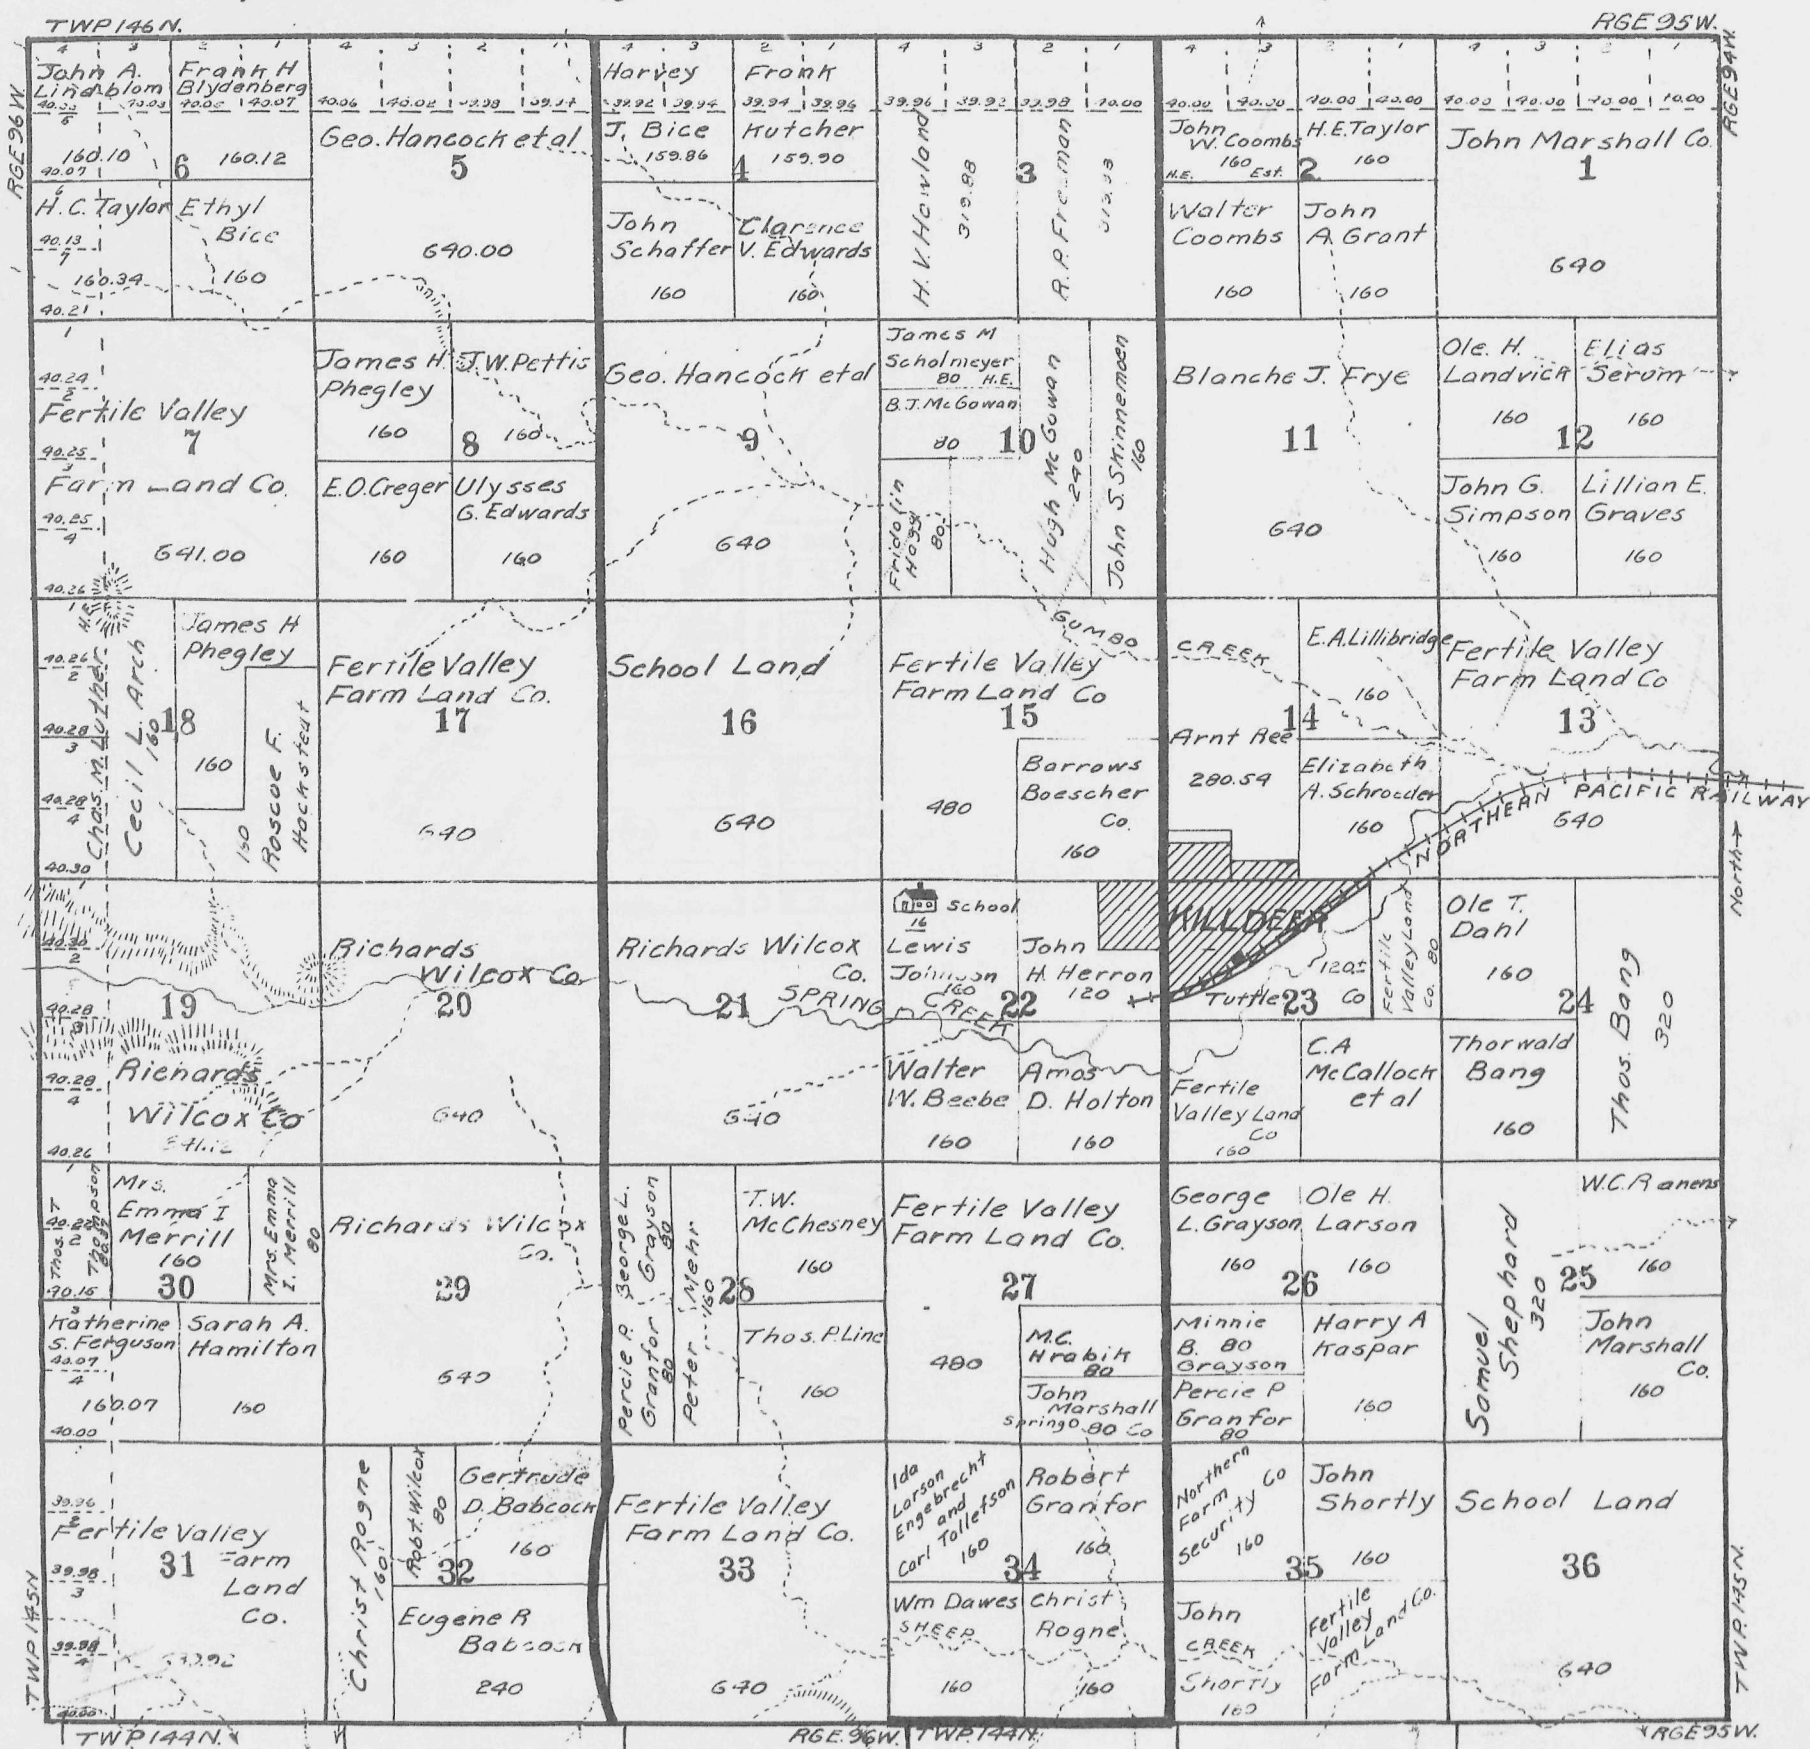 TWP 146 N.
RGE 95 W.
RGE 96 W
RGE 94 W.
4 3 2 1
4 3 2 1
4 3 2 1
4 3 2 1
4 3 2 1
4 3 2 1
John A.
Lindblom
160.10
Frank H
Blydenberg
40.07
160.12
6
40.07
H.C. Taylor
40.13
160.34
40.21
Ethyl
Bice
160
40.06 40.02 39.98
Geo. Hancock et al
5
640.00
Harvey
39.92 39.94
J. Bice
159.86
Frank
39.94 39.96
Kutcher
159.90
4
John
Schaffer
160
Clarence
V. Edwards
160
39.96 39.92 39.98 40.00
H. V. Howland
319.88
3
R. P. Freeman
40.00 40.00 40.00 40.00
John
W. Coombs
160
H.E. Est.
H.E. Taylor
160
2
Walter
Coombs
160
John
A Grant
160
40.00 40.00 40.00 40.00
John Marshall Co.
1
640
1
40.24
2
Fertile Valley
7
40.25
3
Farm Land Co.
40.25
4
641.00
40.26
James H
Phegley
160
J.W. Pettis
160
8
E.O. Creger
160
Ulysses
G. Edwards
160
Geo. Hancock et al
9
640
James M
Scholmeyer
80 H.E.
B.J. McGowan
80
10
Fridolin
Hagg
80
Hugh McGowan
240
John S. Skinnemoen
160
Blanche J. Frye
11
640
Ole. H.
Landvick
160
Elias
Serum
160
12
John G.
Simpson
160
Lillian E.
Graves
160
1
40.26
2
40.28
3
40.28
4
40.30
Chas. M. Luther
H.E.
Cecil L. Arch
160
18
James H
Phegley
160
Roscoe F.
Hackstedt
160
Fertile Valley
Farm Land Co.
17
640
School Land
16
640
Fertile Valley
Farm Land Co
15
480
Barrows
Boescher
Co.
160
GUMBO
CREEK
Arnt Ree
280.54
14
E.A. Lillibridge
160
Elizabeth
A. Schroeder
160
Fertile Valley
Farm Land Co
13
640
NORTHERN PACIFIC RAILWAY
North
1
40.30
2
19
40.28
3
40.28
4
Richards
Wilcox Co
40.26
Richards
Wilcox Co.
20
640
Richards Wilcox
Co.
21
640
SPRING
CREEK
School
16
Lewis
Johnson
160
John
H. Herron
120
22
Walter
W. Beebe
160
Amos
D. Holton
160
KILLDEER
120±
Tuttle Co
23
Fertile
Valley Land
Co. 80
Fertile
Valley Land
Co
160
C.A
McCallock
et al
Ole T.
Dahl
160
24
Thos. Bang
320
Thorwald
Bang
160
1
Thos. T
Thompson
40.22
2
40.15
Mrs.
Emma I
Merrill
160
30
Mrs. Emma
I. Merrill
80
3
Katherine
S. Ferguson
40.07
4
160.07
40.00
Sarah A.
Hamilton
160
Richards Wilcox
Co.
29
640
George L.
Grayson
80
Percie P.
Granfor
80
Peter Mehr
160
28
T.W.
McChesney
160
Thos. P. Line
160
Fertile Valley
Farm Land Co.
27
480
M.C.
Hrabik
80
John
Marshall
Spring 80 Co
George
L. Grayson
160
Ole H.
Larson
160
26
Minnie
B. 80
Grayson
Percie P
Granfor
80
Harry A
Kaspar
160
Samuel
Shephard
320
W.C. Ranens
25
160
John
Marshall
Co.
160
39.96
2
Fertile Valley
31
Farm
Land
Co.
39.98
3
39.98
4
40.00
Christ Rogne
160
Robt Wilcox
80
Gertrude
D. Babcock
160
32
Eugene R
Babcock
240
Fertile Valley
Farm Land Co.
33
640
Ida
Larson
Engebrecht
and
Carl Tollefson
160
Robert
Granfor
160
34
Wm Dawes
SHEEP
160
Christ
Rogne
160
Northern
Farm
Security Co
160
John
Shortly
160
35
John
CREEK
Shortly
160
Fertile
Valley
Farm Land Co.
School Land
36
640
TWP. 145 N
TWP. 145 N.
TWP 144 N.
RGE. 96 W.
TWP. 144 N.
RGE 95 W.